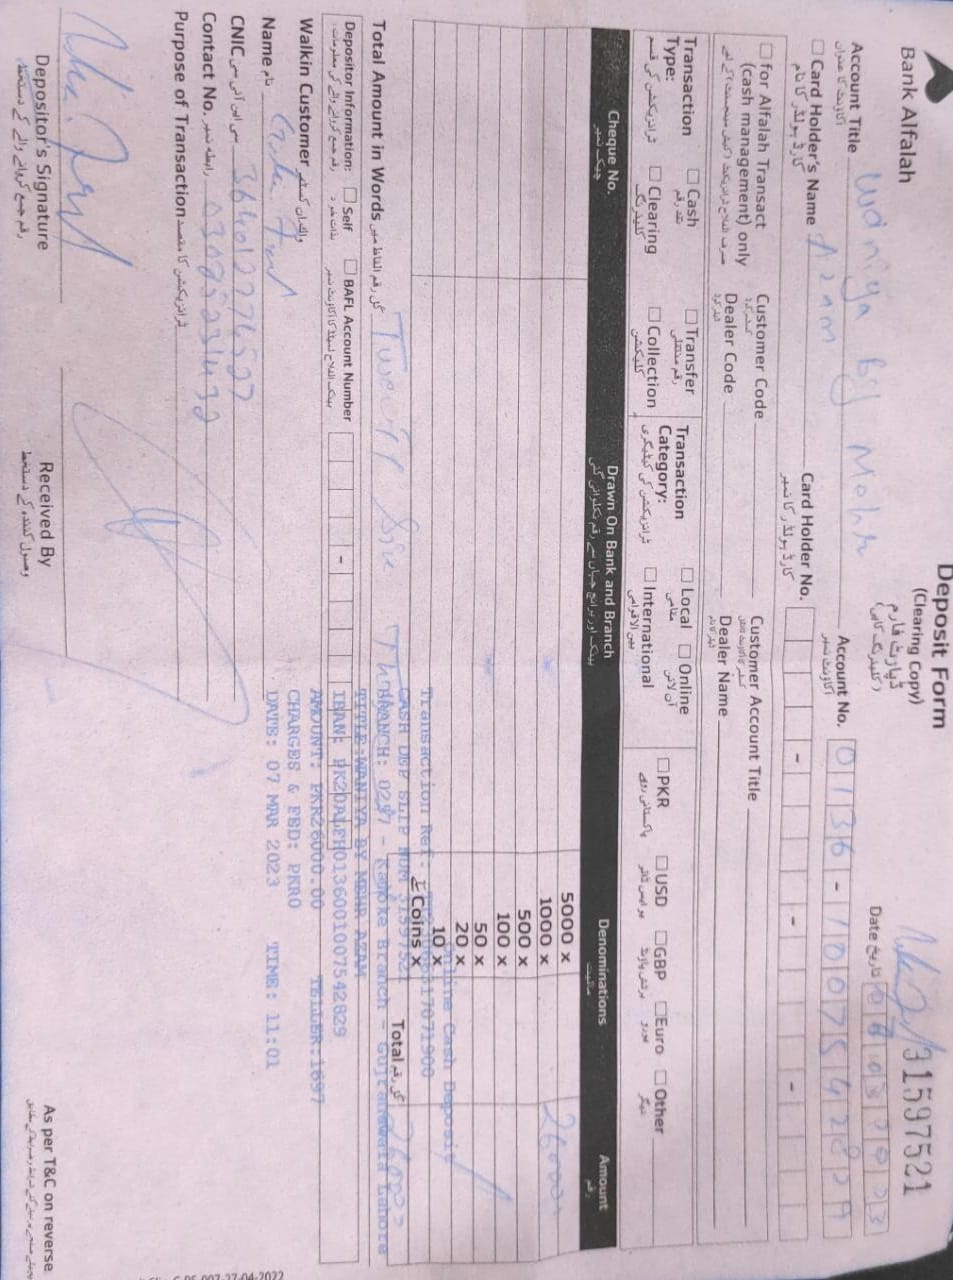 Deposit Form
(Clearing Copy)
ڈپازٹ فارم
(کلیئرنگ کاپی)
Bank Alfalah
31597521
Date تاریخ
Account Title Waniya By Mehr
اکاؤنٹ کا عنوان
Account No. 0136-1007542829
اکاؤنٹ نمبر
Card Holder's Name Azam
کارڈ ہولڈر کا نام
Card Holder No.
کارڈ ہولڈر کا نمبر
for Alfalah Transact
(cash management) only
Customer Code
Customer Account Title
Dealer Code
Dealer Name
Transaction Type:
ٹرانزیکشن کی قسم
Cash نقد رقم
Transfer رقم منتقلی
Clearing کلیئرنگ
Collection کلیکشن
Transaction Category:
ٹرانزیکشن کی کیٹیگری
Local مقامی
Online آن لائن
International بین الاقوامی
PKR پاکستانی روپے
USD یو ایس ڈالر
GBP برٹش پاؤنڈ
Euro یورو
Other دیگر
Cheque No. چیک نمبر
Drawn On Bank and Branch
بینک اور برانچ جہاں سے رقم نکلوائی گئی
Denominations مالیت
Amount رقم
5000 x
26000
1000 x
500 x
100 x
50 x
20 x
10 x
Coins x
Total کل رقم 26000
Online Cash Deposit
Transaction Ref:
CASH DEP SLIP NUM 31597521
BRANCH: 0297 - Kamoke Branch - Gujranawala Lahore
TITLE:WANIYA BY MEHR AZAM
IBAN: PK20ALFH0136001007542829
AMOUNT: PKR26000.00 TELLER:1697
CHARGES & FED: PKR0
DATE: 07 MAR 2023 TIME: 11:01
Total Amount in Words کل رقم الفاظ میں
Depositor Information:
رقم جمع کروانے والے کی معلومات:
Self بذات خود
BAFL Account Number
بینک الفلاح لمیٹڈ کا اکاؤنٹ نمبر
Walkin Customer واک ان کسٹمر
Name نام
CNIC سی این آئی سی 364012774527
Contact No. رابطہ نمبر 03085231432
Purpose of Transaction ٹرانزیکشن کا مقصد
Depositor's Signature
رقم جمع کروانے والے کے دستخط
Received By
وصول کنندہ کے دستخط
As per T&C on reverse